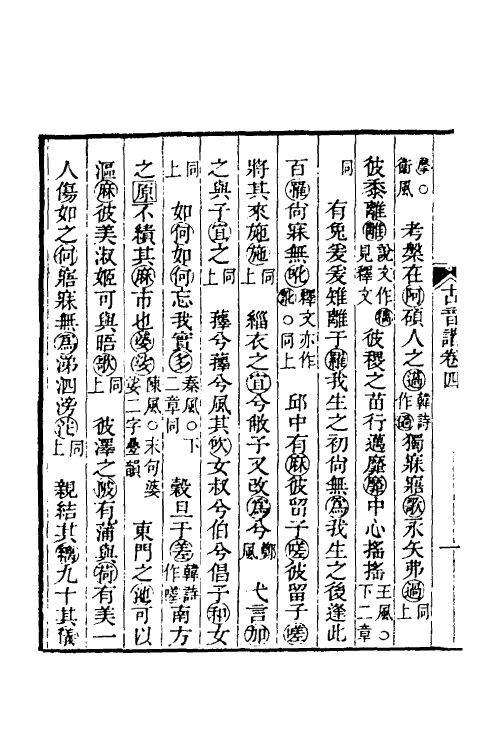 古音譜卷四
一
學○衛風　考槃在阿碩人之薖韓詩作過獨寐寤歌永矢弗過同上
彼黍離離說文作穲見釋文　彼稷之苗行邁靡靡中心搖搖王風○下二章
同　有兔爰爰雉離于羅我生之初尚無爲我生之後逢此
百罹尚寐無吪釋文亦作訛○同上　邱中有麻彼留子嗟彼留子嗟
將其來施施同上　緇衣之宜兮敝予又改爲兮鄭風　弋言加
之與子宜之同上　蘀兮蘀兮風其吹女叔兮伯兮倡予和女
同上　如何如何忘我實多秦風○下二章同　穀旦于差韓詩作嗟南方
之原不績其麻市也婆娑陳風○末句婆娑二字疊韻　東門之池可以
漚麻彼美淑姬可與晤歌同上　彼澤之陂有蒲與荷有美一
人傷如之何寤寐無爲涕泗滂沱同上　親結其縭九十其儀